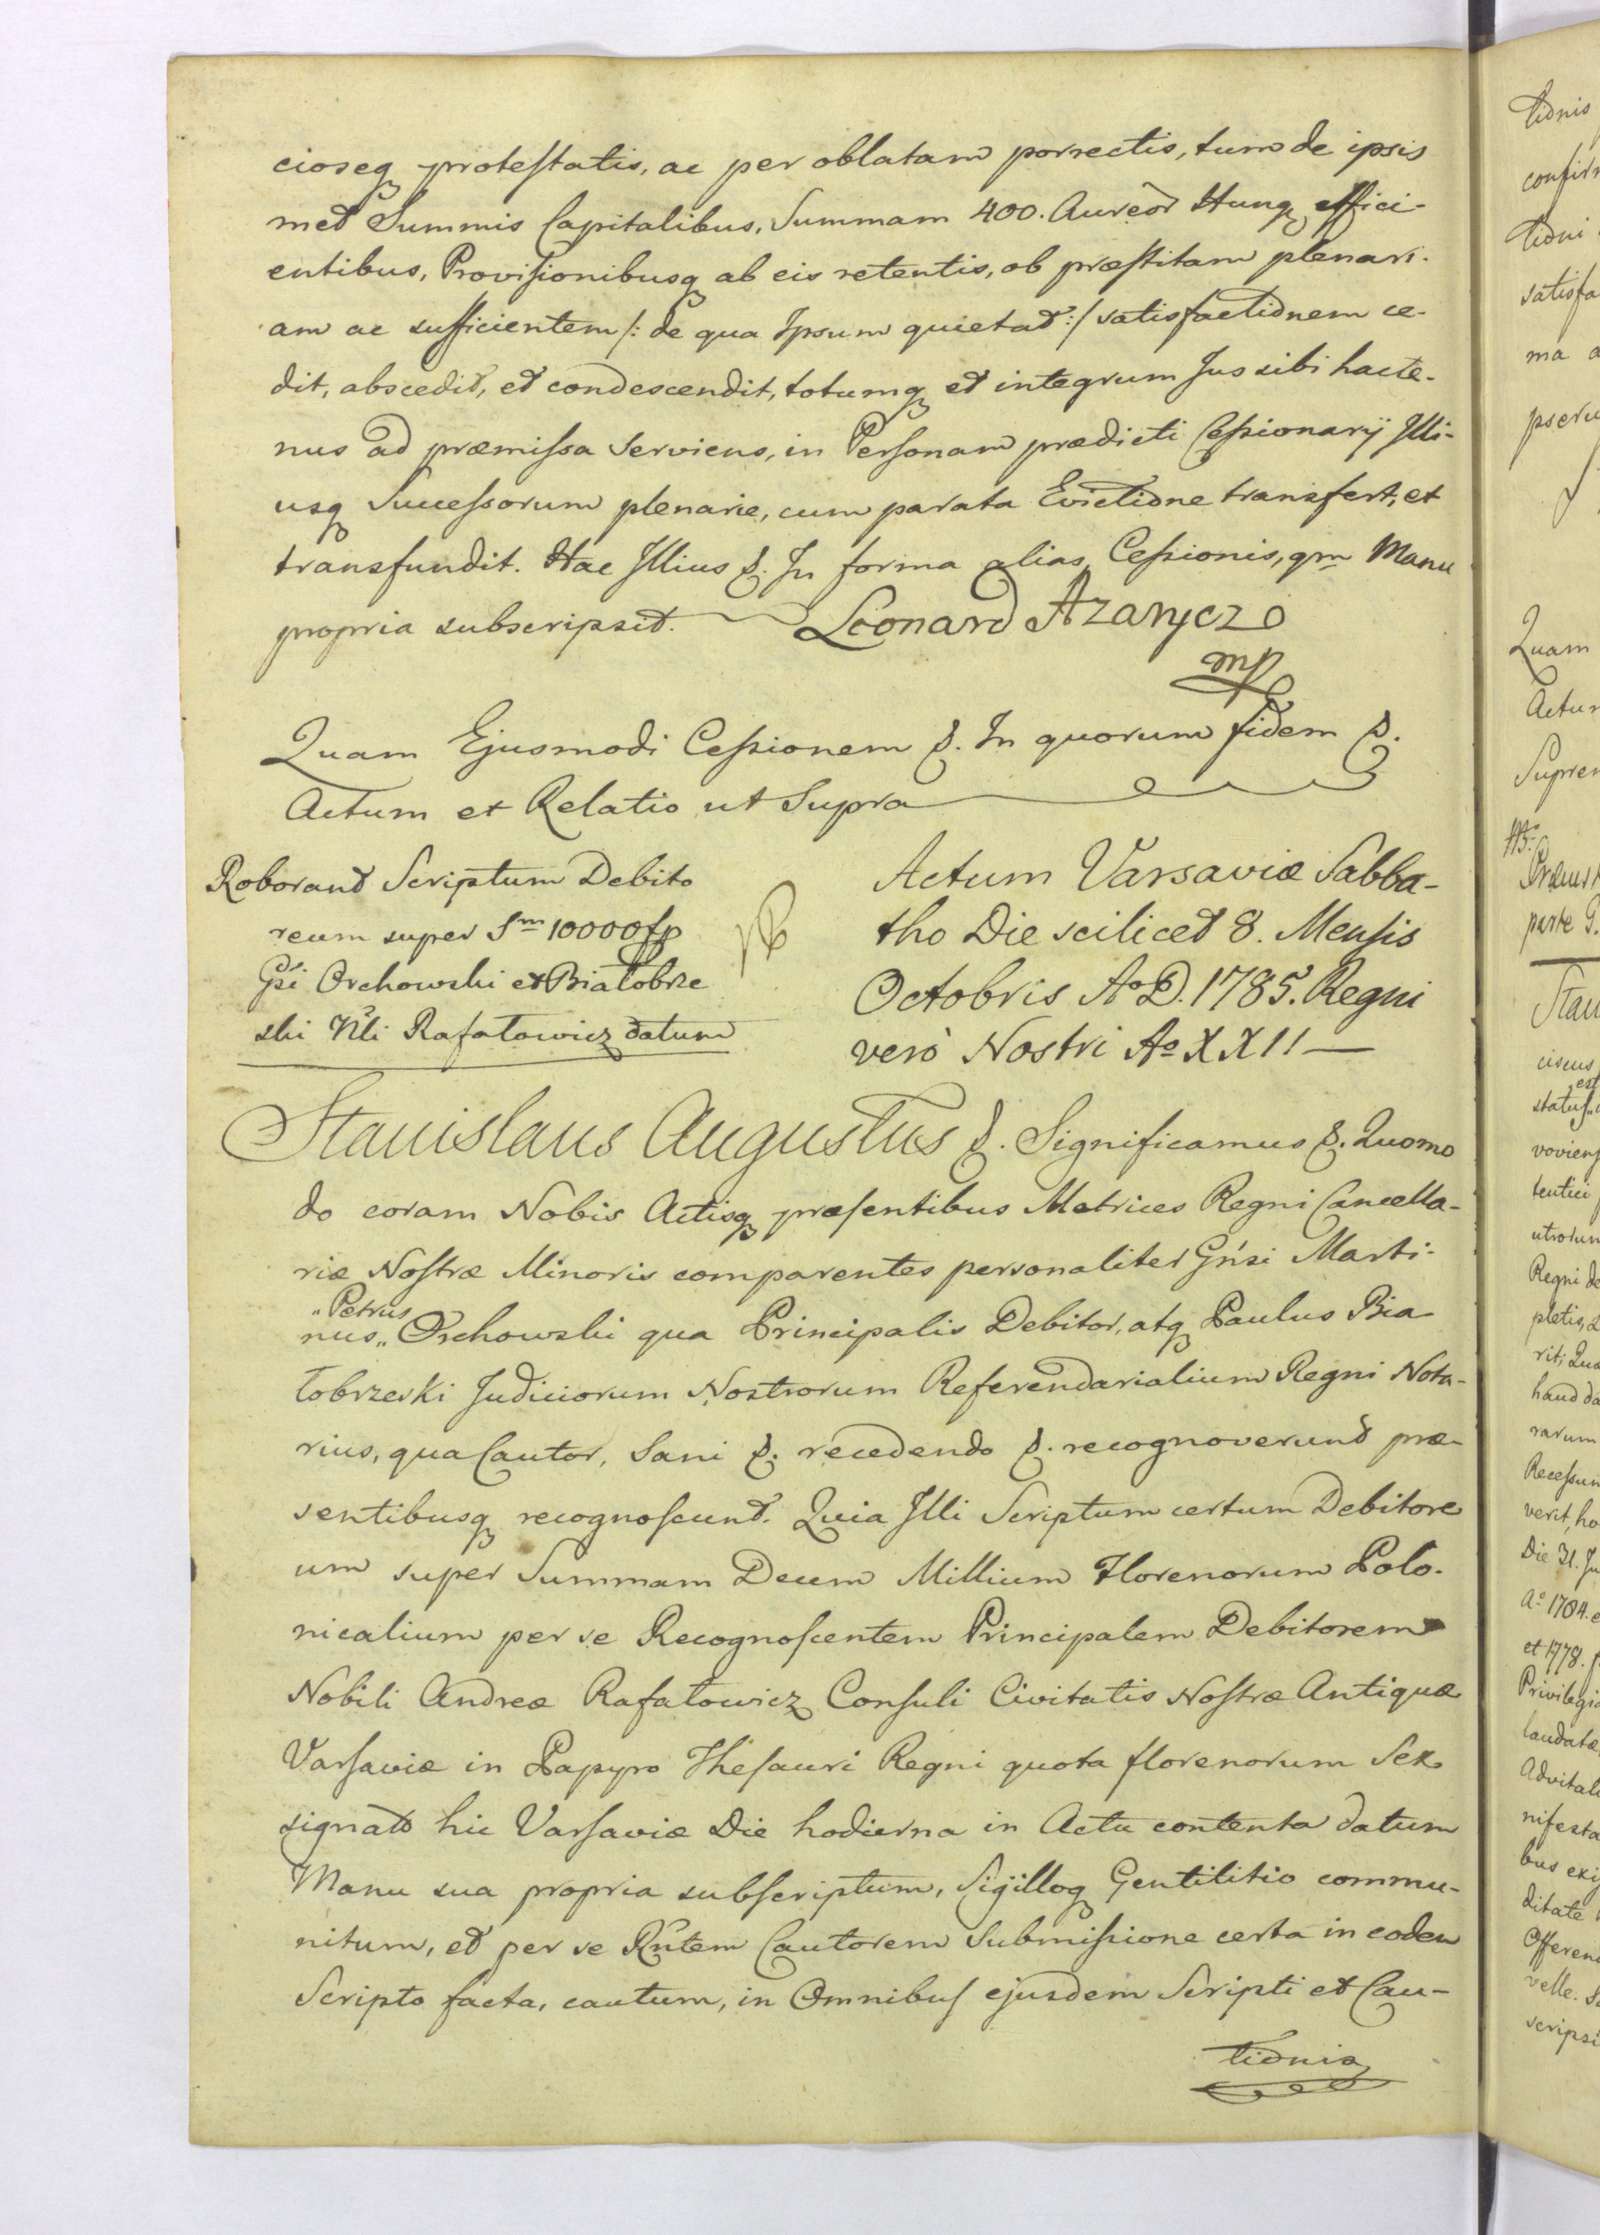 cioseq protestatis, ac per oblatam porrectis, tum de ipsis
met Summis Capitalibus, Summam 400. Aureor Hung effici-
entibus, Provisionibusq ab eis retentis, ob præstitam plenari-
am ac sufficientem /: de qua Ipsum quietat :/ satisfactionem ce-
dit, abscedit, et condescendit, totumq et integrum Jus sibi hacte-
nus ad præmissa serviens, in Personam prædicti Cessionarij Illi-
usq Successorum plenarie, cum parata Evictione transfert, et
transfundit. Hac Illius &. In forma alias Cessionis, qm Manu
propria subscripsit. Leonard Azarycz
mp
Quam Ejusmodi Cessionem &. In quorum fidem &.
Actum et Relatio ut Supra
Roborant Scriptum Debito
reum super Sm 10000 fp
Gsi Orchowski et Białobrze
ski Nli Rafałowicz datum
Actum Varsaviæ Sabba-
tho Die scilicet 8. Mensis
Octobris Ao D. 1785. Regni
verò Nostri Ao XXII
Stanislaus Augustus &. Significamus &. Quomo
do coram Nobis Actisq præsentibus Metrices Regni Cancella-
riæ Nostræ Minoris comparentes personaliter Gnsi Marti-
"Petrus
nus" Orchowski qua Principalis Debitor, atq Paulus Bia
łobrzeski Judiciorum Nostrorum Referendarialium Regni Nota-
rius, qua Cautor, Sani &. recedendo &. recognoverunt præ-
sentibusq recognoscunt. Quia Illi Scriptum certum Debitore
um super Summam Decem Millium Florenorum Polo-
nicalium per se Recognoscentem Principalem Debitorem
Nobili Andreæ Rafałowicz Consuli Civitatis Nostræ Antiquæ
Varsaviæ in Papyro Thesauri Regni quota florenorum Sex
signato hic Varsaviæ Die hodierna in Actu contenta datum
Manu sua propria subscriptum, Sigilloq Gentilitio commu-
nitum, et per se Rntem Cautorem Submissione certa in eodem
Scripto facta, cautum, in Omnibus ejusdem Scripti et Cau-
tionis
tionis
confir
tioni
satisfa
ma a
pseru
Quam
Actum
Suprem
parte
Stan
statu
Regni de
pletis,
rit; Qua
haud da
rarum
Recessum
verit, ho
Die 31. Ju
Ao 1784. e
et 1778.
Privilegi
laudatæ
Advital
nifesta
bus exi
ditate
Offeren
velle.
scripsi